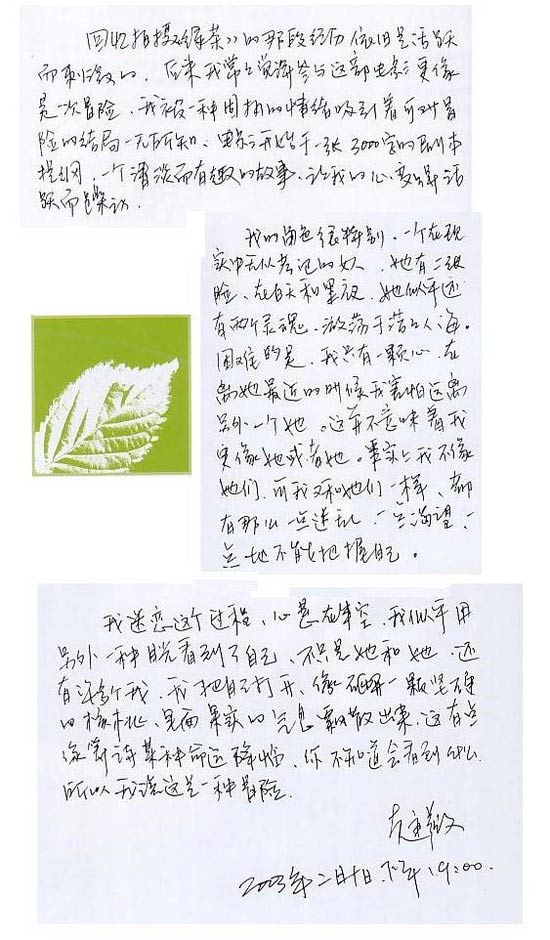 回忆拍摄《绿茶》的那段经历依旧是活跃
而刺激的。后来我常常觉得参与这部电影更像
是一次冒险。我被一种固执的情绪吸引着而对冒
险的结局一无所知。电影开始于一张3000字的剧本
提纲，一个清淡而有趣的故事，让我的心变得活
跃而躁动.
我的角色很特别，一个在现
实中无从考记的女人，她有二张
脸，在白天和黑夜，她似乎还
有两个灵魂，游荡于茫茫人海。
困难的是，我只有一颗心，在
离她最近的时候我害怕远离
另外一个她。这并不意味着我
更像她或者她。事实上我不像
她们，而我又和她们一样，都
有那么一点迷乱，一点渴望，一
点地不能把握自己。
我迷恋这个过程，心悬在半空，我似乎用
另外一种目光看到了自己，不只是她和她，还
有许多个我，我把自己打开，像砸开一颗坚硬
的核桃，里面果实的气息飘散出来，这有点
像等待某种命运降临，你不知道会看到什么
所以我说这是一种冒险.
2003年二月十日下午19:00.